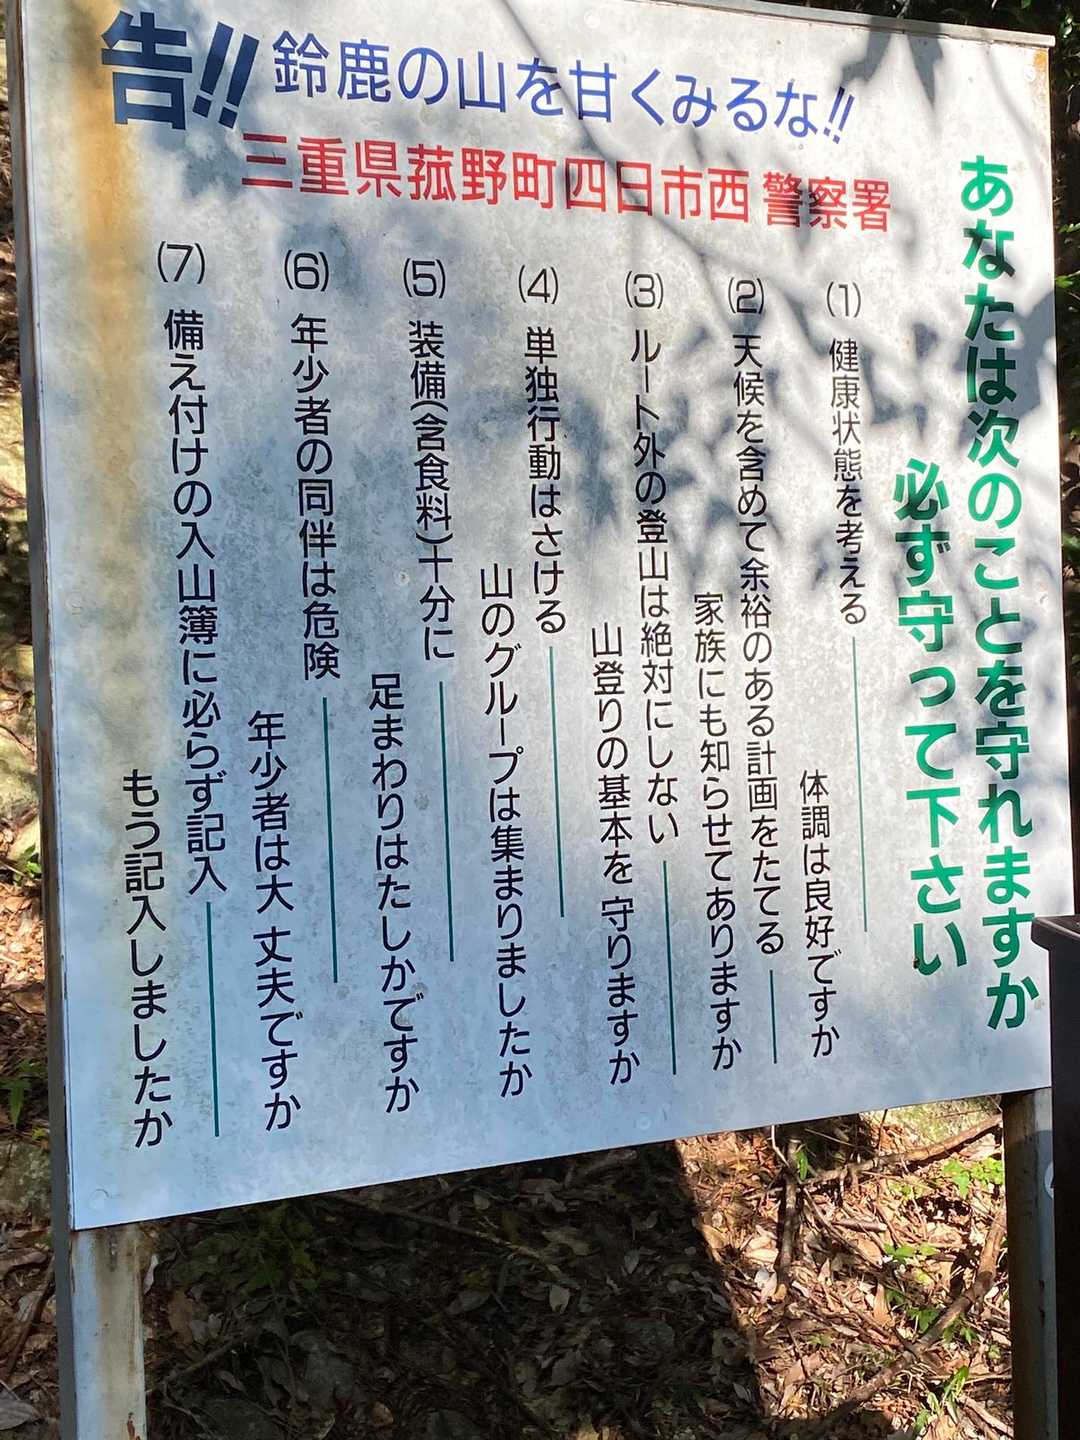 告!! 鈴鹿の山を甘くみるな!!
三重県菰野町四日市西警察署
あなたは次のことを守れますか
必ず守って下さい
(1) 健康状態を考える
体調は良好ですか
(2) 天候を含めて余裕のある計画をたてる
家族にも知らせてありますか
(3) ルート外の登山は絶対にしない
山登りの基本を守りますか
(4) 単独行動はさける
山のグループは集まりましたか
(5) 装備(含食料)十分に
足まわりはたしかですか
(6) 年少者の同伴は危険
年少者は大丈夫ですか
(7) 備え付けの入山簿に必らず記入
もう記入しましたか